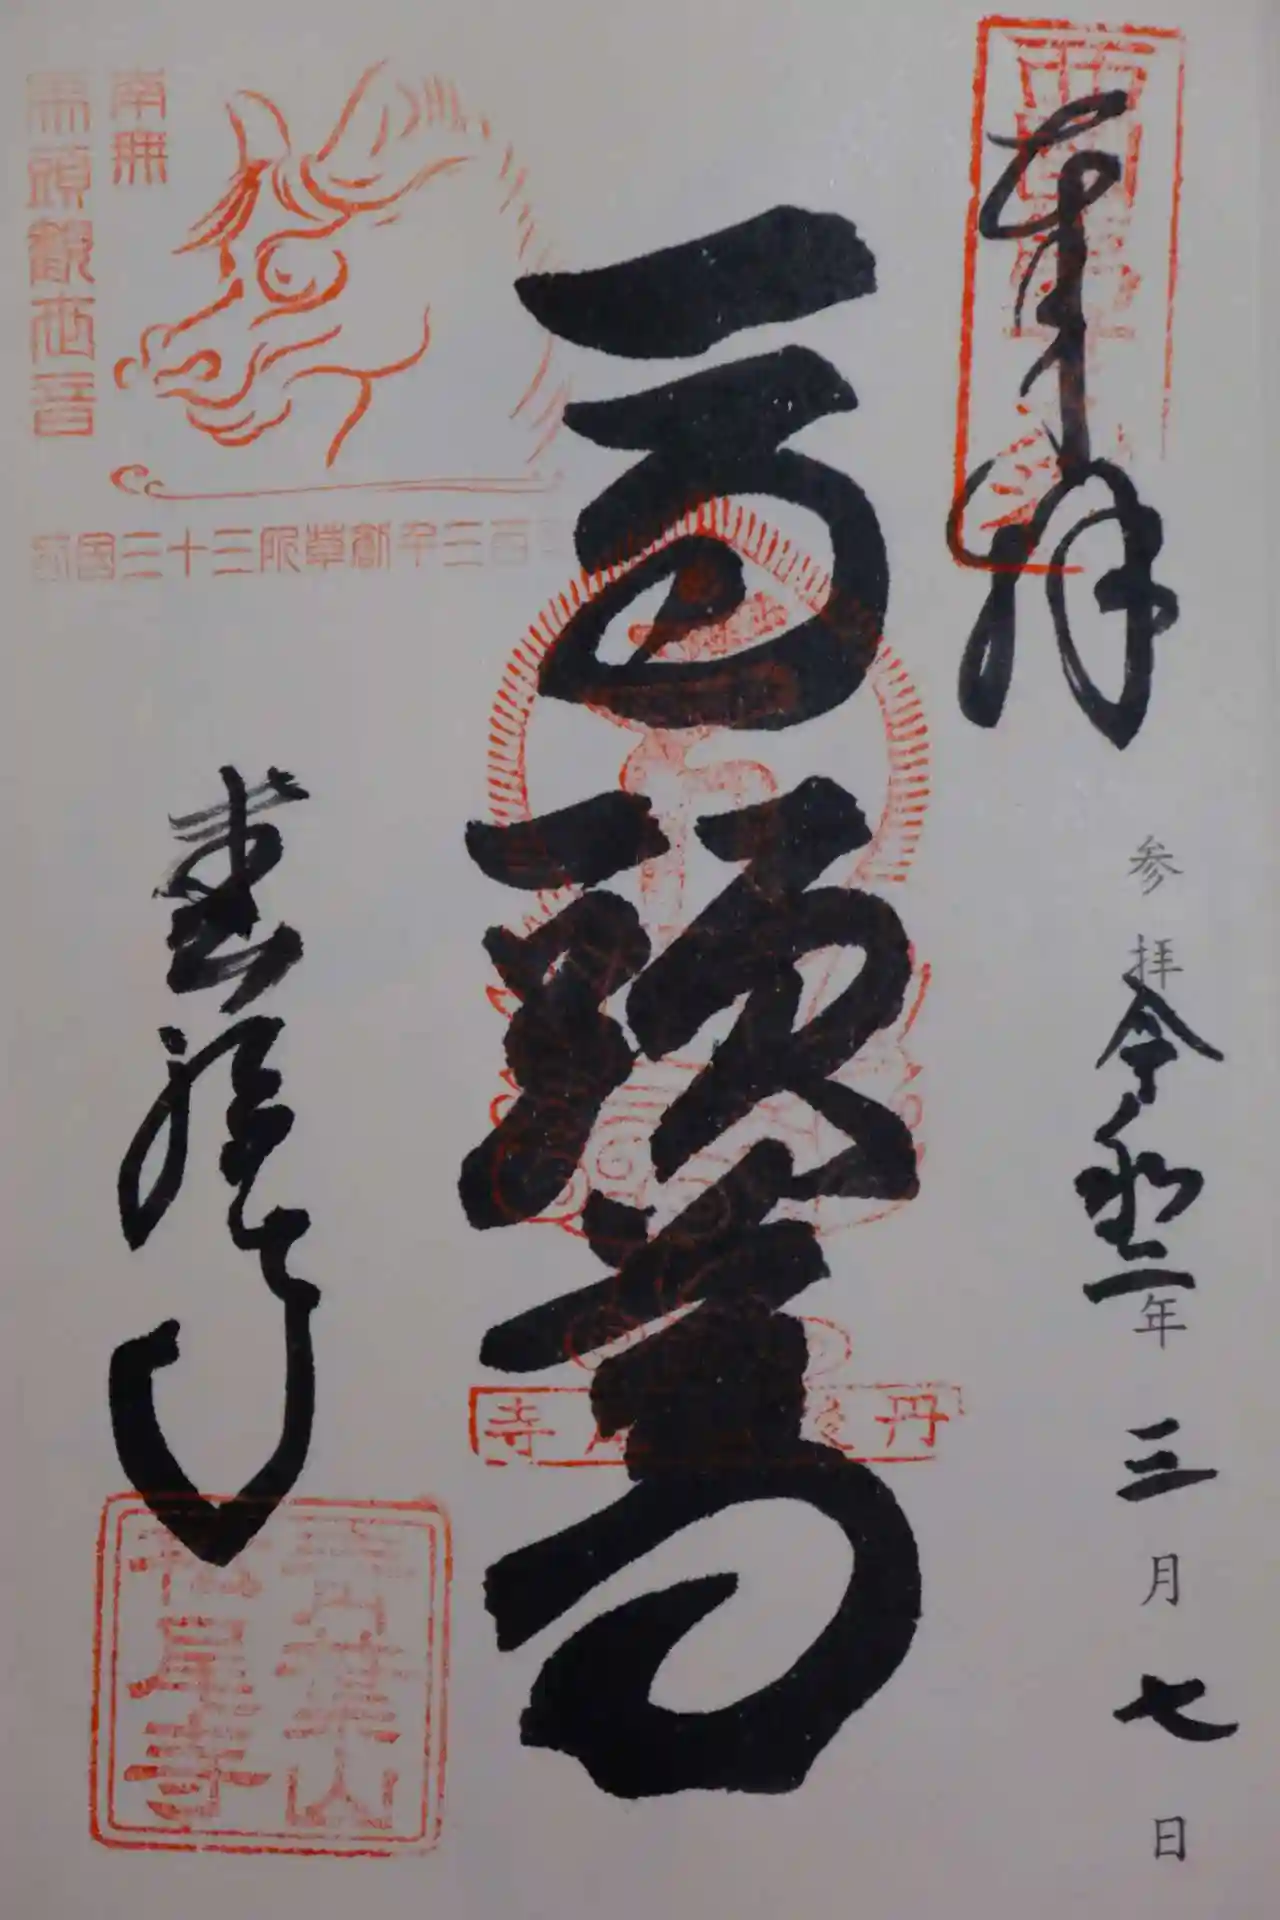 奉拝
西国第廿九番
参拝 令和二年 三月 七日
馬頭尊
丹後 松尾寺
南無
馬頭観世音
西国三十三所草創千三百年
松尾寺
青葉山
松尾寺